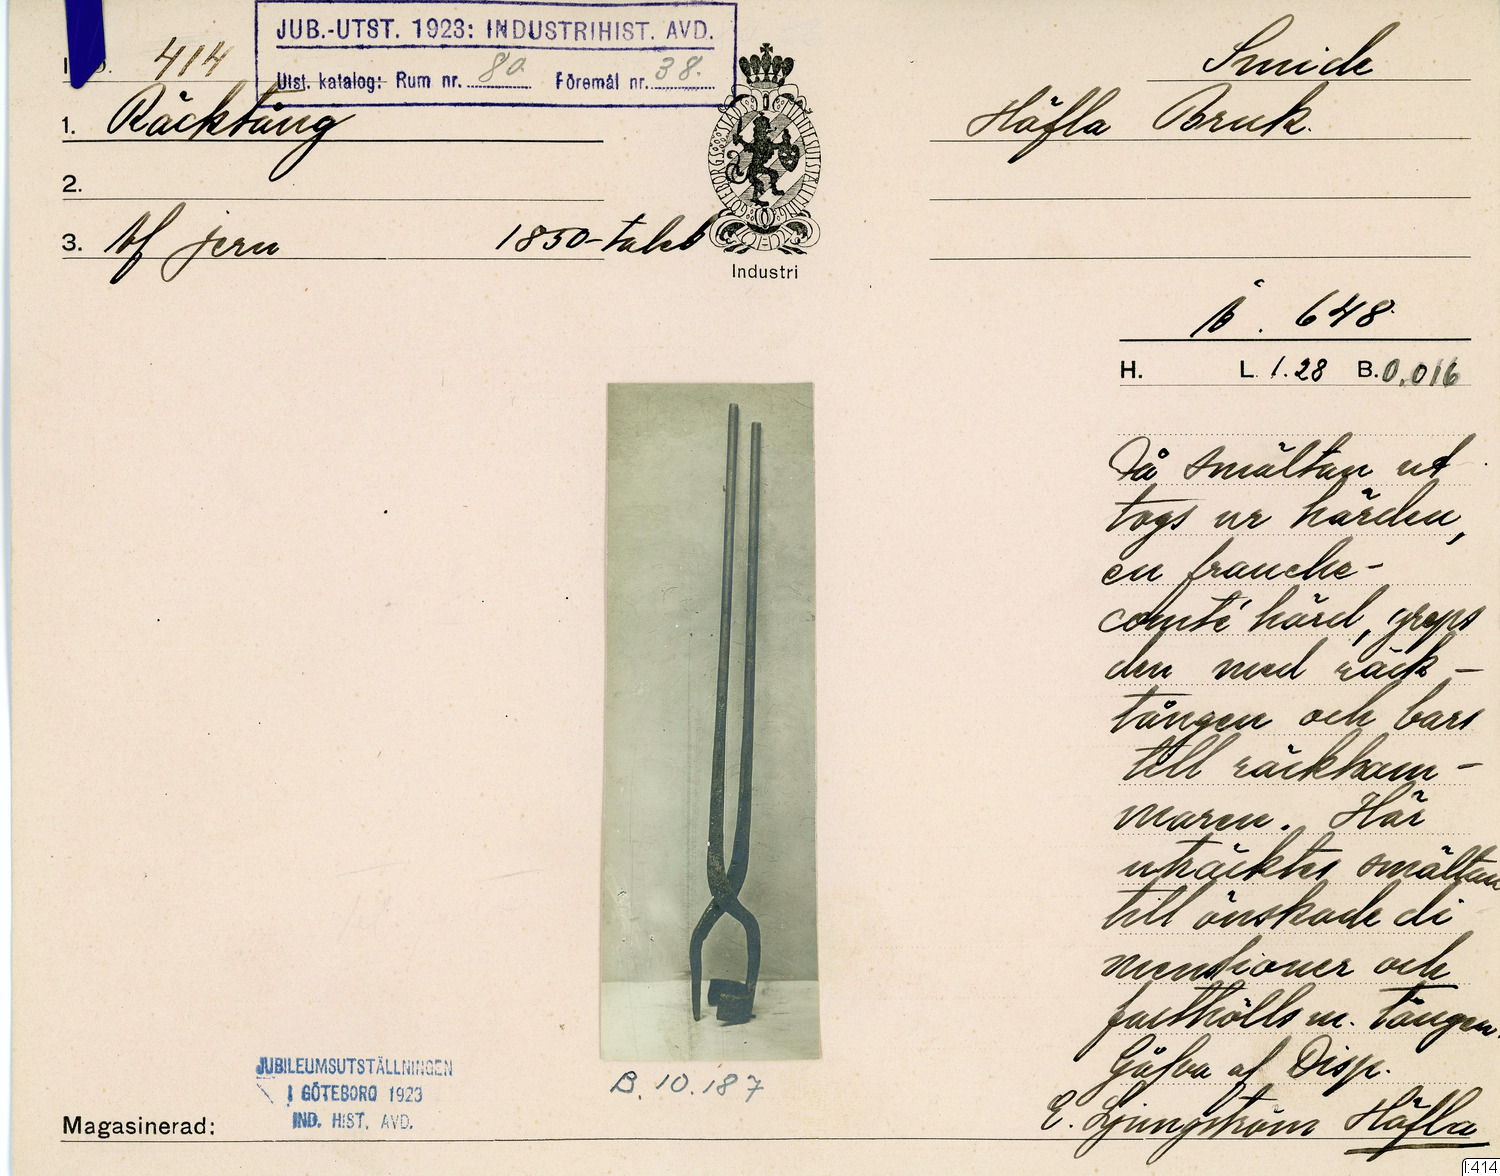 JUB.-UTST. 1923: INDUSTRIHIST. AVD.
Utst. katalog: Rum nr. 80 Föremål nr. 38.
414
Smide
1. Räcktång
Häfla Bruk.
2.
3. Af jern 1850-talet
GÖTEBORGS STADS MINNESUTSTÄLLNING
Industri
648
H. L. 1.28 B. 0,016
Då smältan ut
togs ur härden,
en franche-
comté härd, greps
den med räck-
tången och bars
till räckham-
maren. Här
uträcktes smältan
till önskade di
mentioner och
fasthölls m. tången.
Gåfva af Disp.
E. Ljungström Häfla
JUBILEUMSUTSTÄLLNINGEN
I GÖTEBORG 1923
IND. HIST. AVD.
B. 10.187
Magasinerad:
I:414